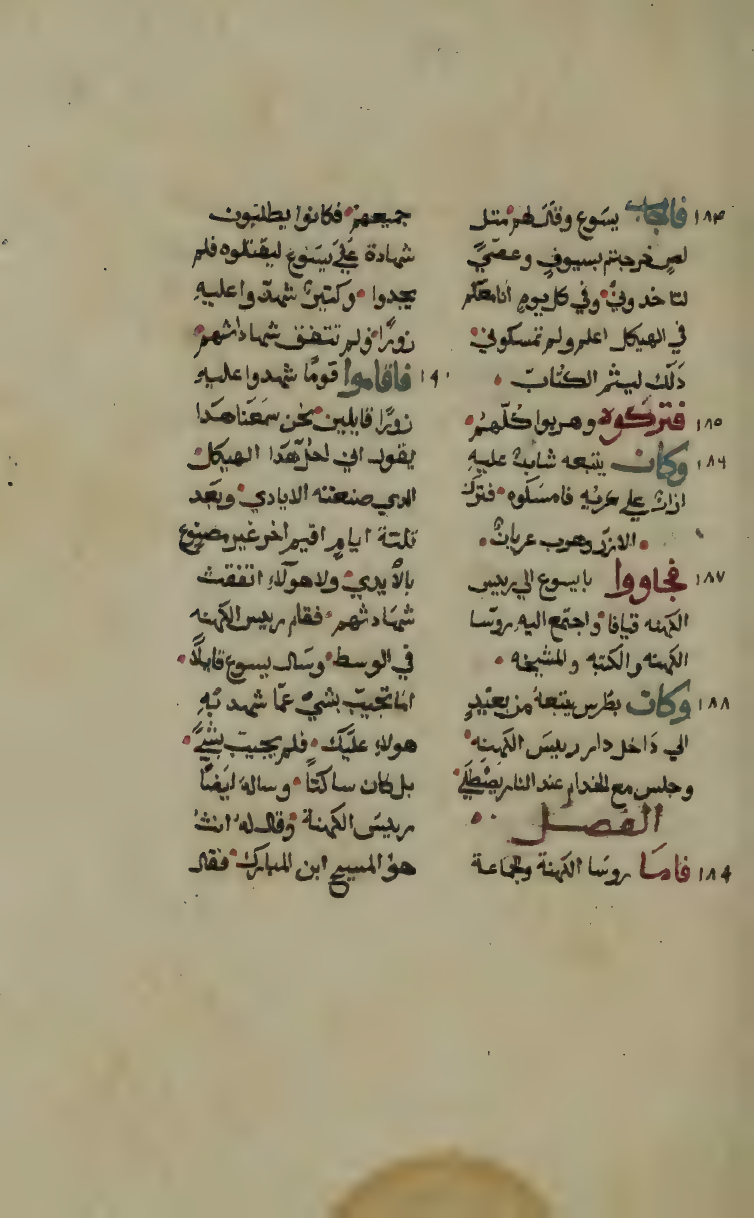 ١٨٤ فاجاب يسوع وقال لهم مثل
لص خرجتم بسيوف وعصي
لتاخدوني وفي كل يوم انا معكم
في الهيكل اعلم ولم تمسكوني
ذلك ليتم الكتاب
١٨٥ فتركوه وهربوا كلهم
١٨٦ وكان يتبعه شاب عليه
ازار علي عريه فامسكوه فترك
الازار وهرب عريان
١٨٧ فجاووا بايسوع الي ريس
الكهنه قيافا واجتمع اليه روسا
الكهنه والكتبه والمشيخه
١٨٨ وكان بطرس يتبعه من بعيد
الي داخل دار رييس الكهنه
وجلس مع الخدام عند النار يصطلي
الفصل
١٨٩ فاما روسا الكهنة والجماعة
جميعهم فكانوا يطلبون
شهادة علي يسوع ليقتلوه فلم
يجدوا وكتير شهدوا عليه
زورا ولم تتفق شهاداتهم
١٩٠ فاقاموا قوما شهدوا عليه
زورا قايلين نحن سمعنا هدا
يقول اني احل هدا الهيكل
الدي صنعته الايادي وبعد
تلتة ايام اقيم اخر غير مصنوع
بالايدي ولا هولاء اتفقت
شهادتهم فقام رييس الكهنه
في الوسط وسال يسوع قايلا
اما تجيب بشي عما شهد به
هولاء عليك فلم يجيب بشي
بل كان ساكتا وساله ايضا
رييس الكهنة وقال له انت
هو المسيح ابن المبارك فقال